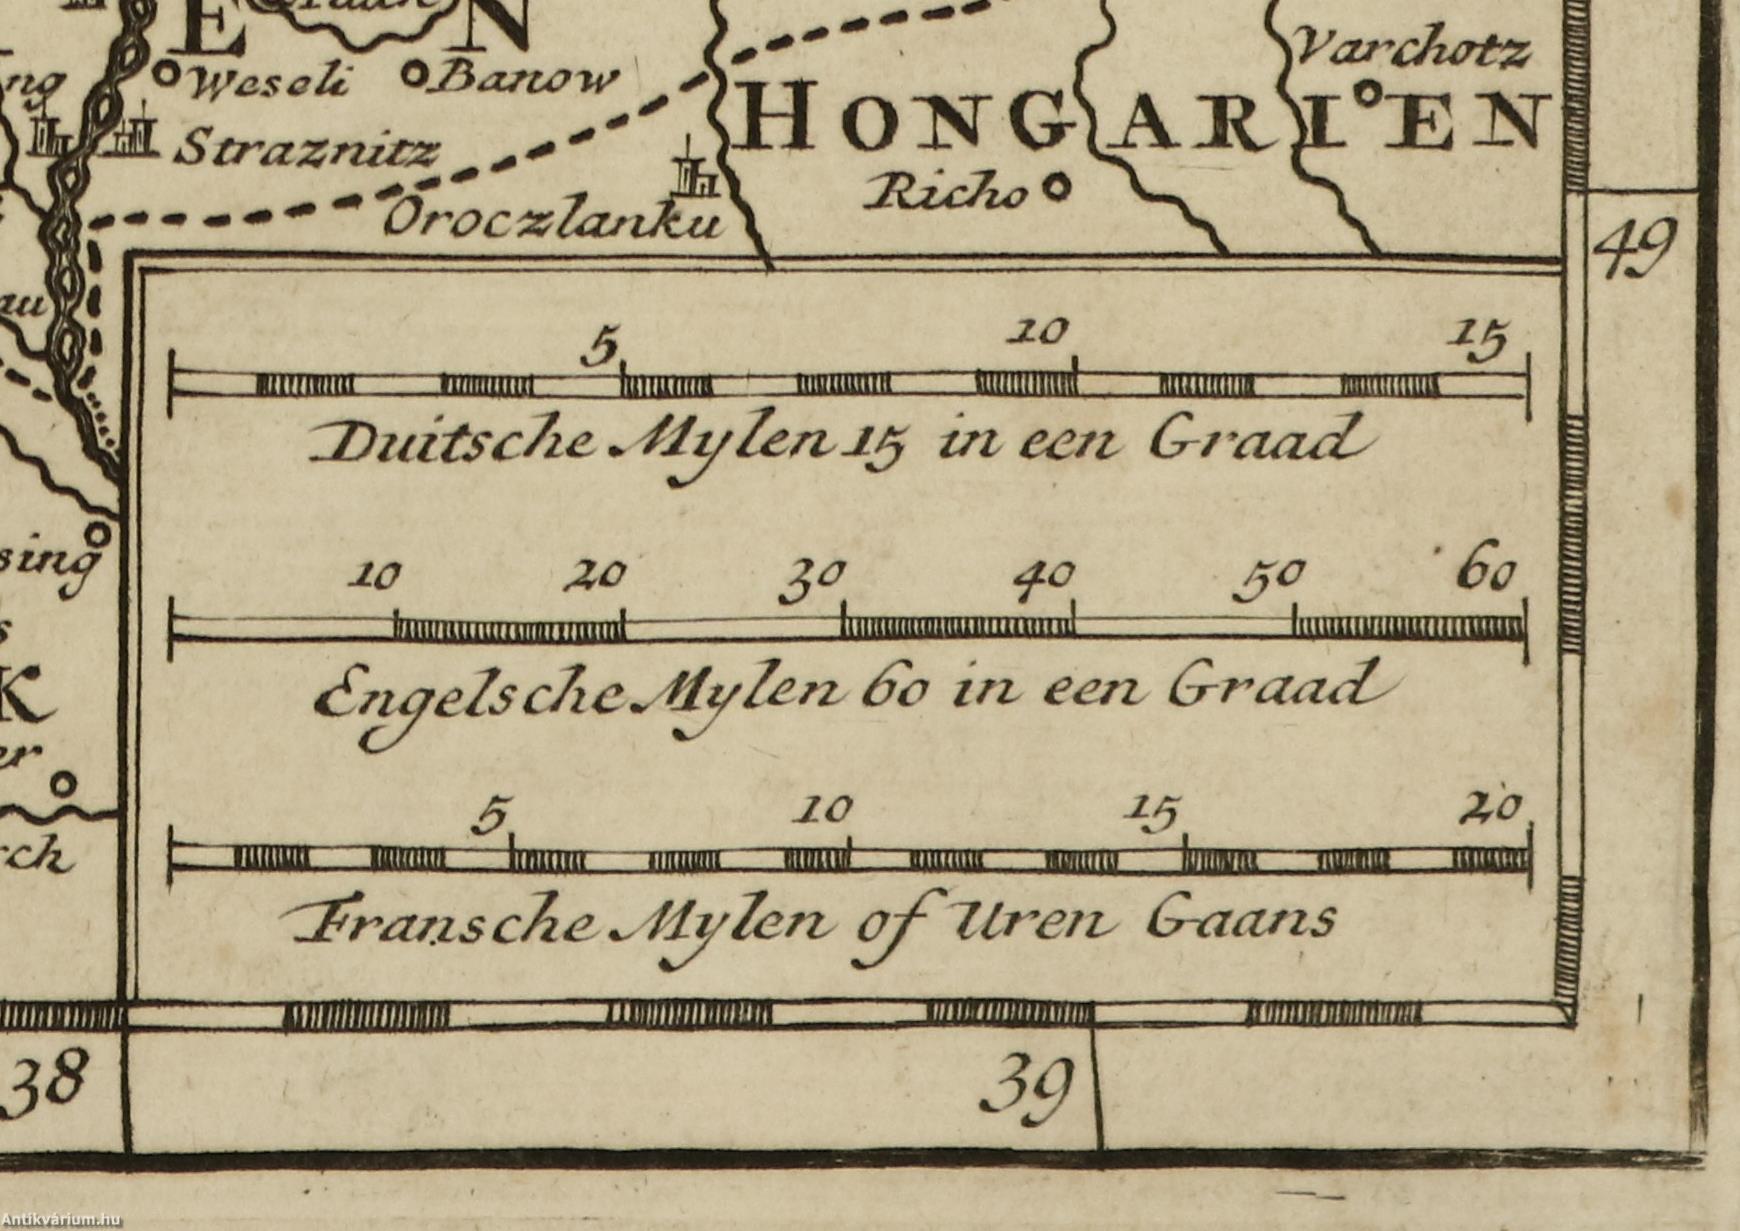 E N
Weseli Banow
Varchotz
HONGARIEN
Straznitz
Richo
Oroczlanku
49
5 10 15
Duitsche Mylen 15 in een Graad
10 20 30 40 50 60
Engelsche Mylen 60 in een Graad
5 10 15 20
Fransche Mylen of Uren Gaans
38 39
Antikvárium.hu